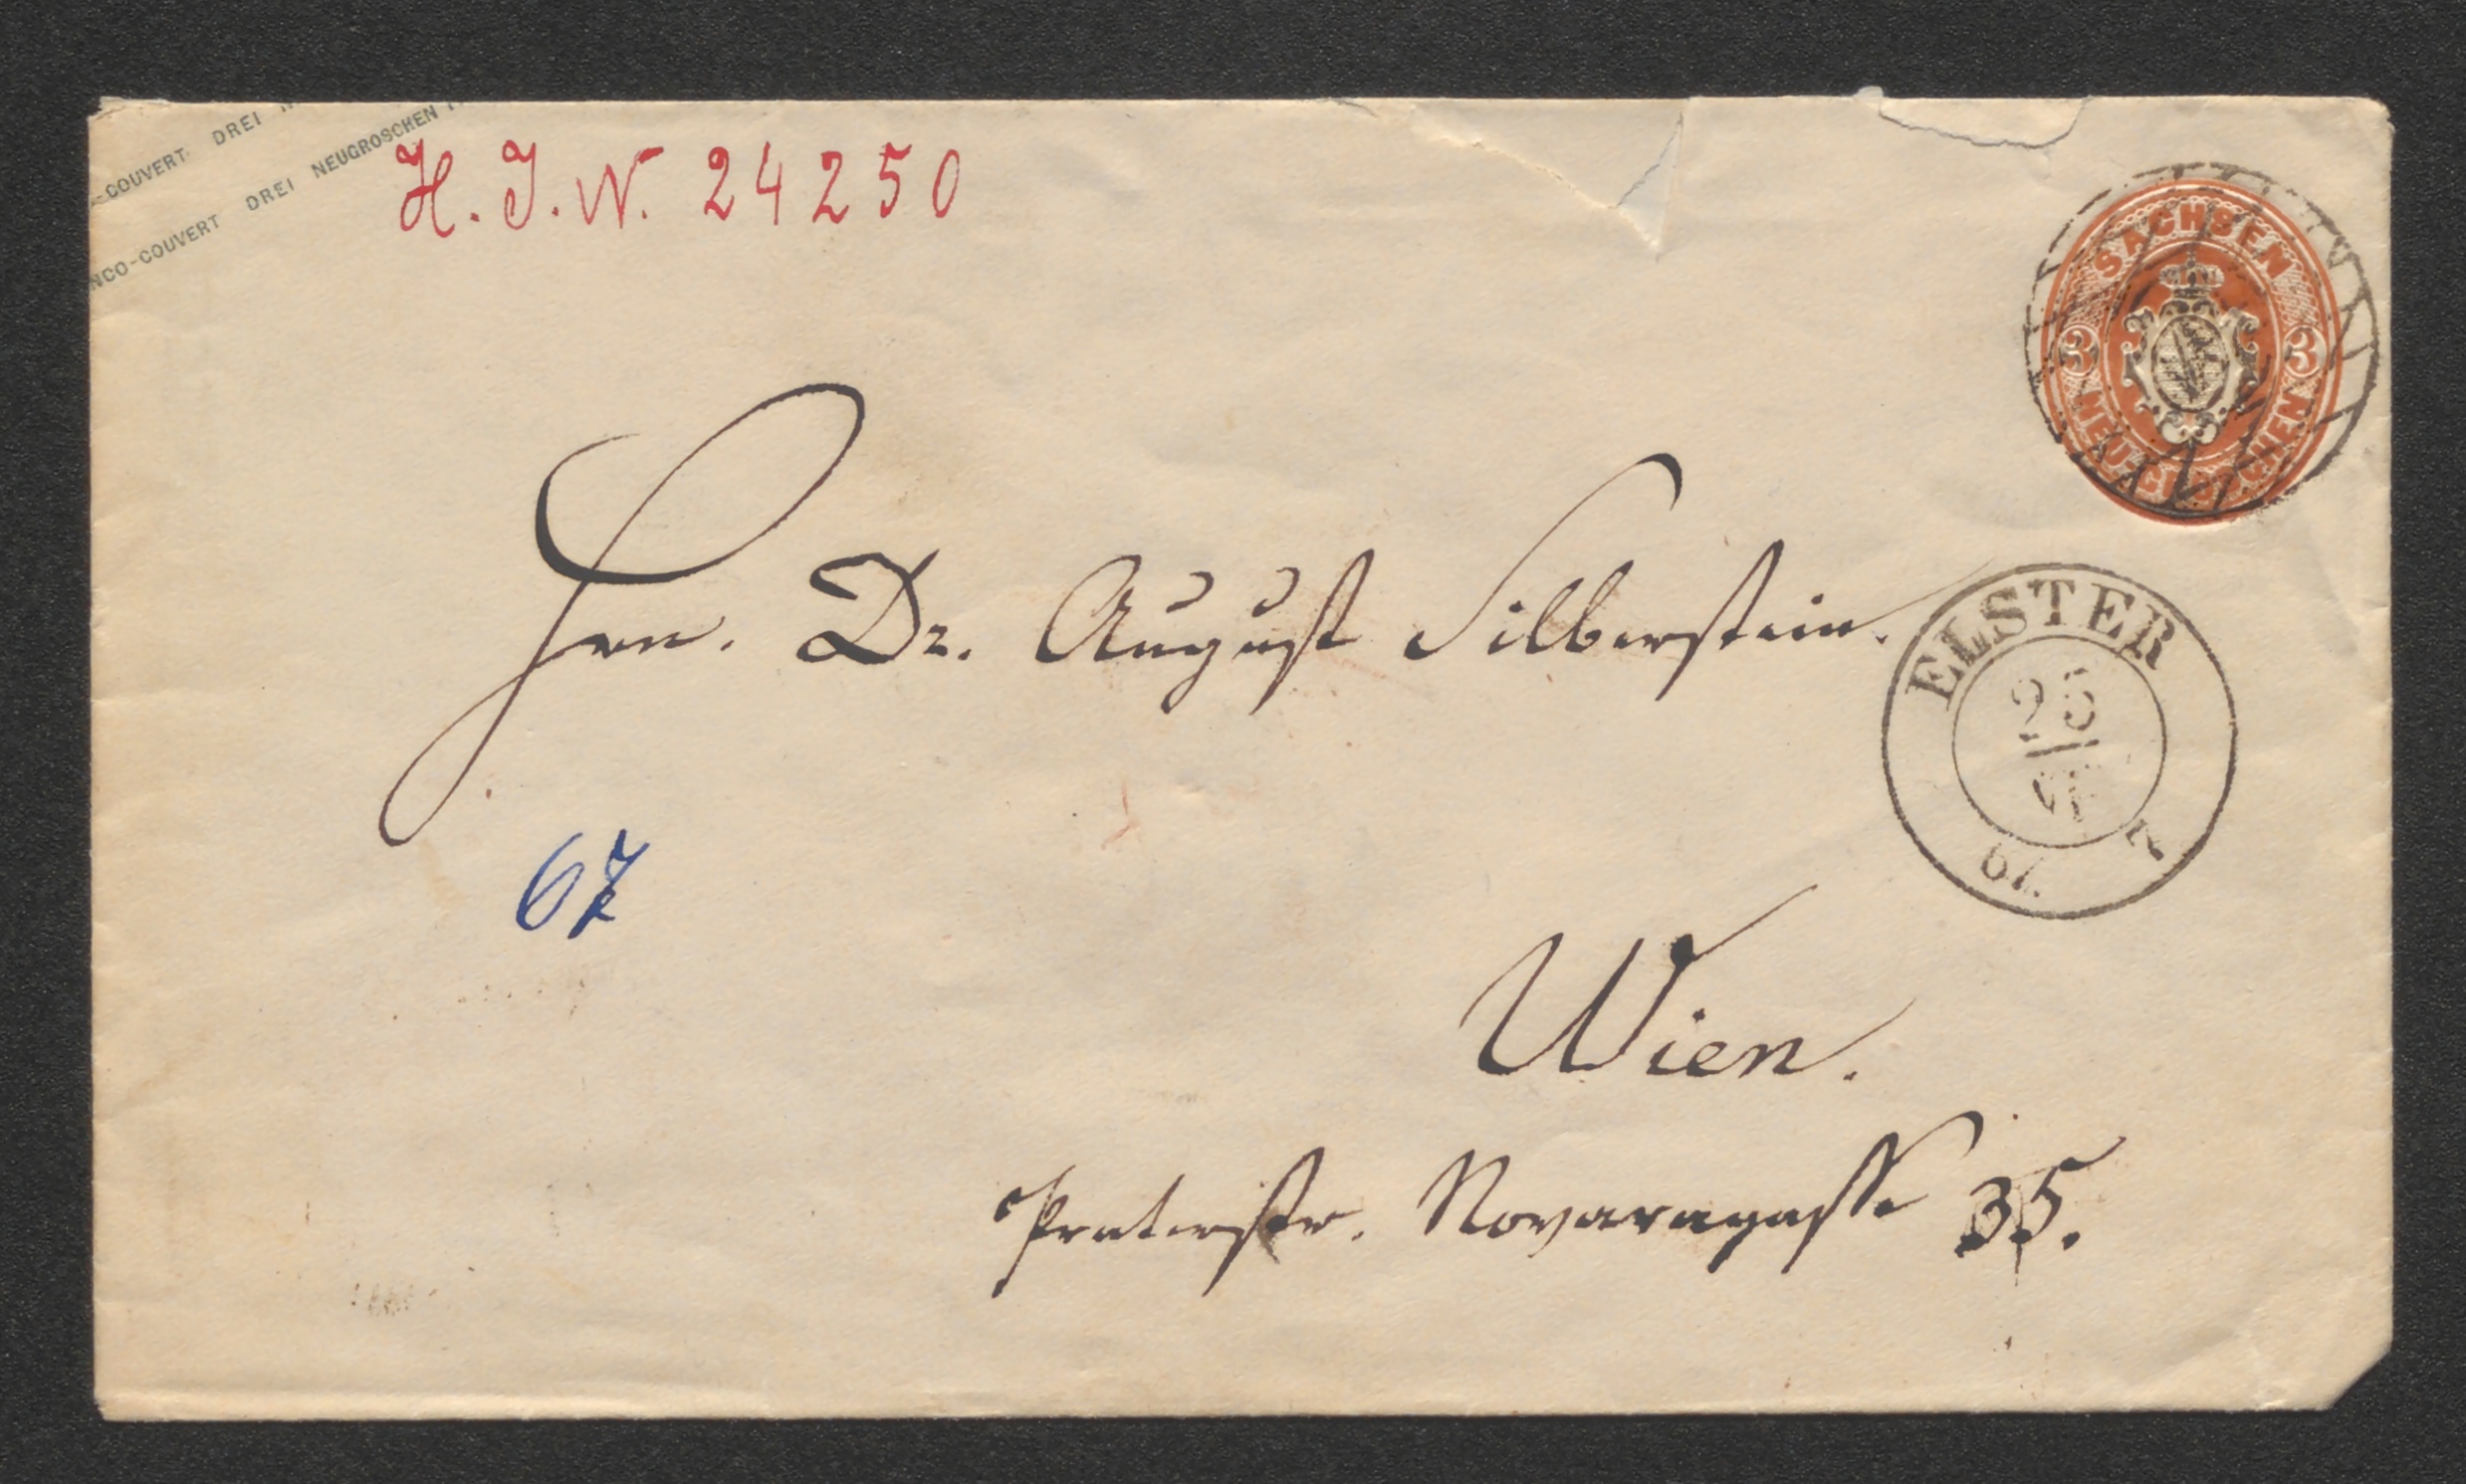 -COUVERT DREI
NCO-COUVERT DREI NEUGROSCHEN
H. J. N. 24250
SACHSEN
3 3
NEU-GROSCHEN
Hrn. Dr. August Silberstein.
ELSTER
25
VI
67.
67
Wien.
Praterstr. Novaragasse 35.